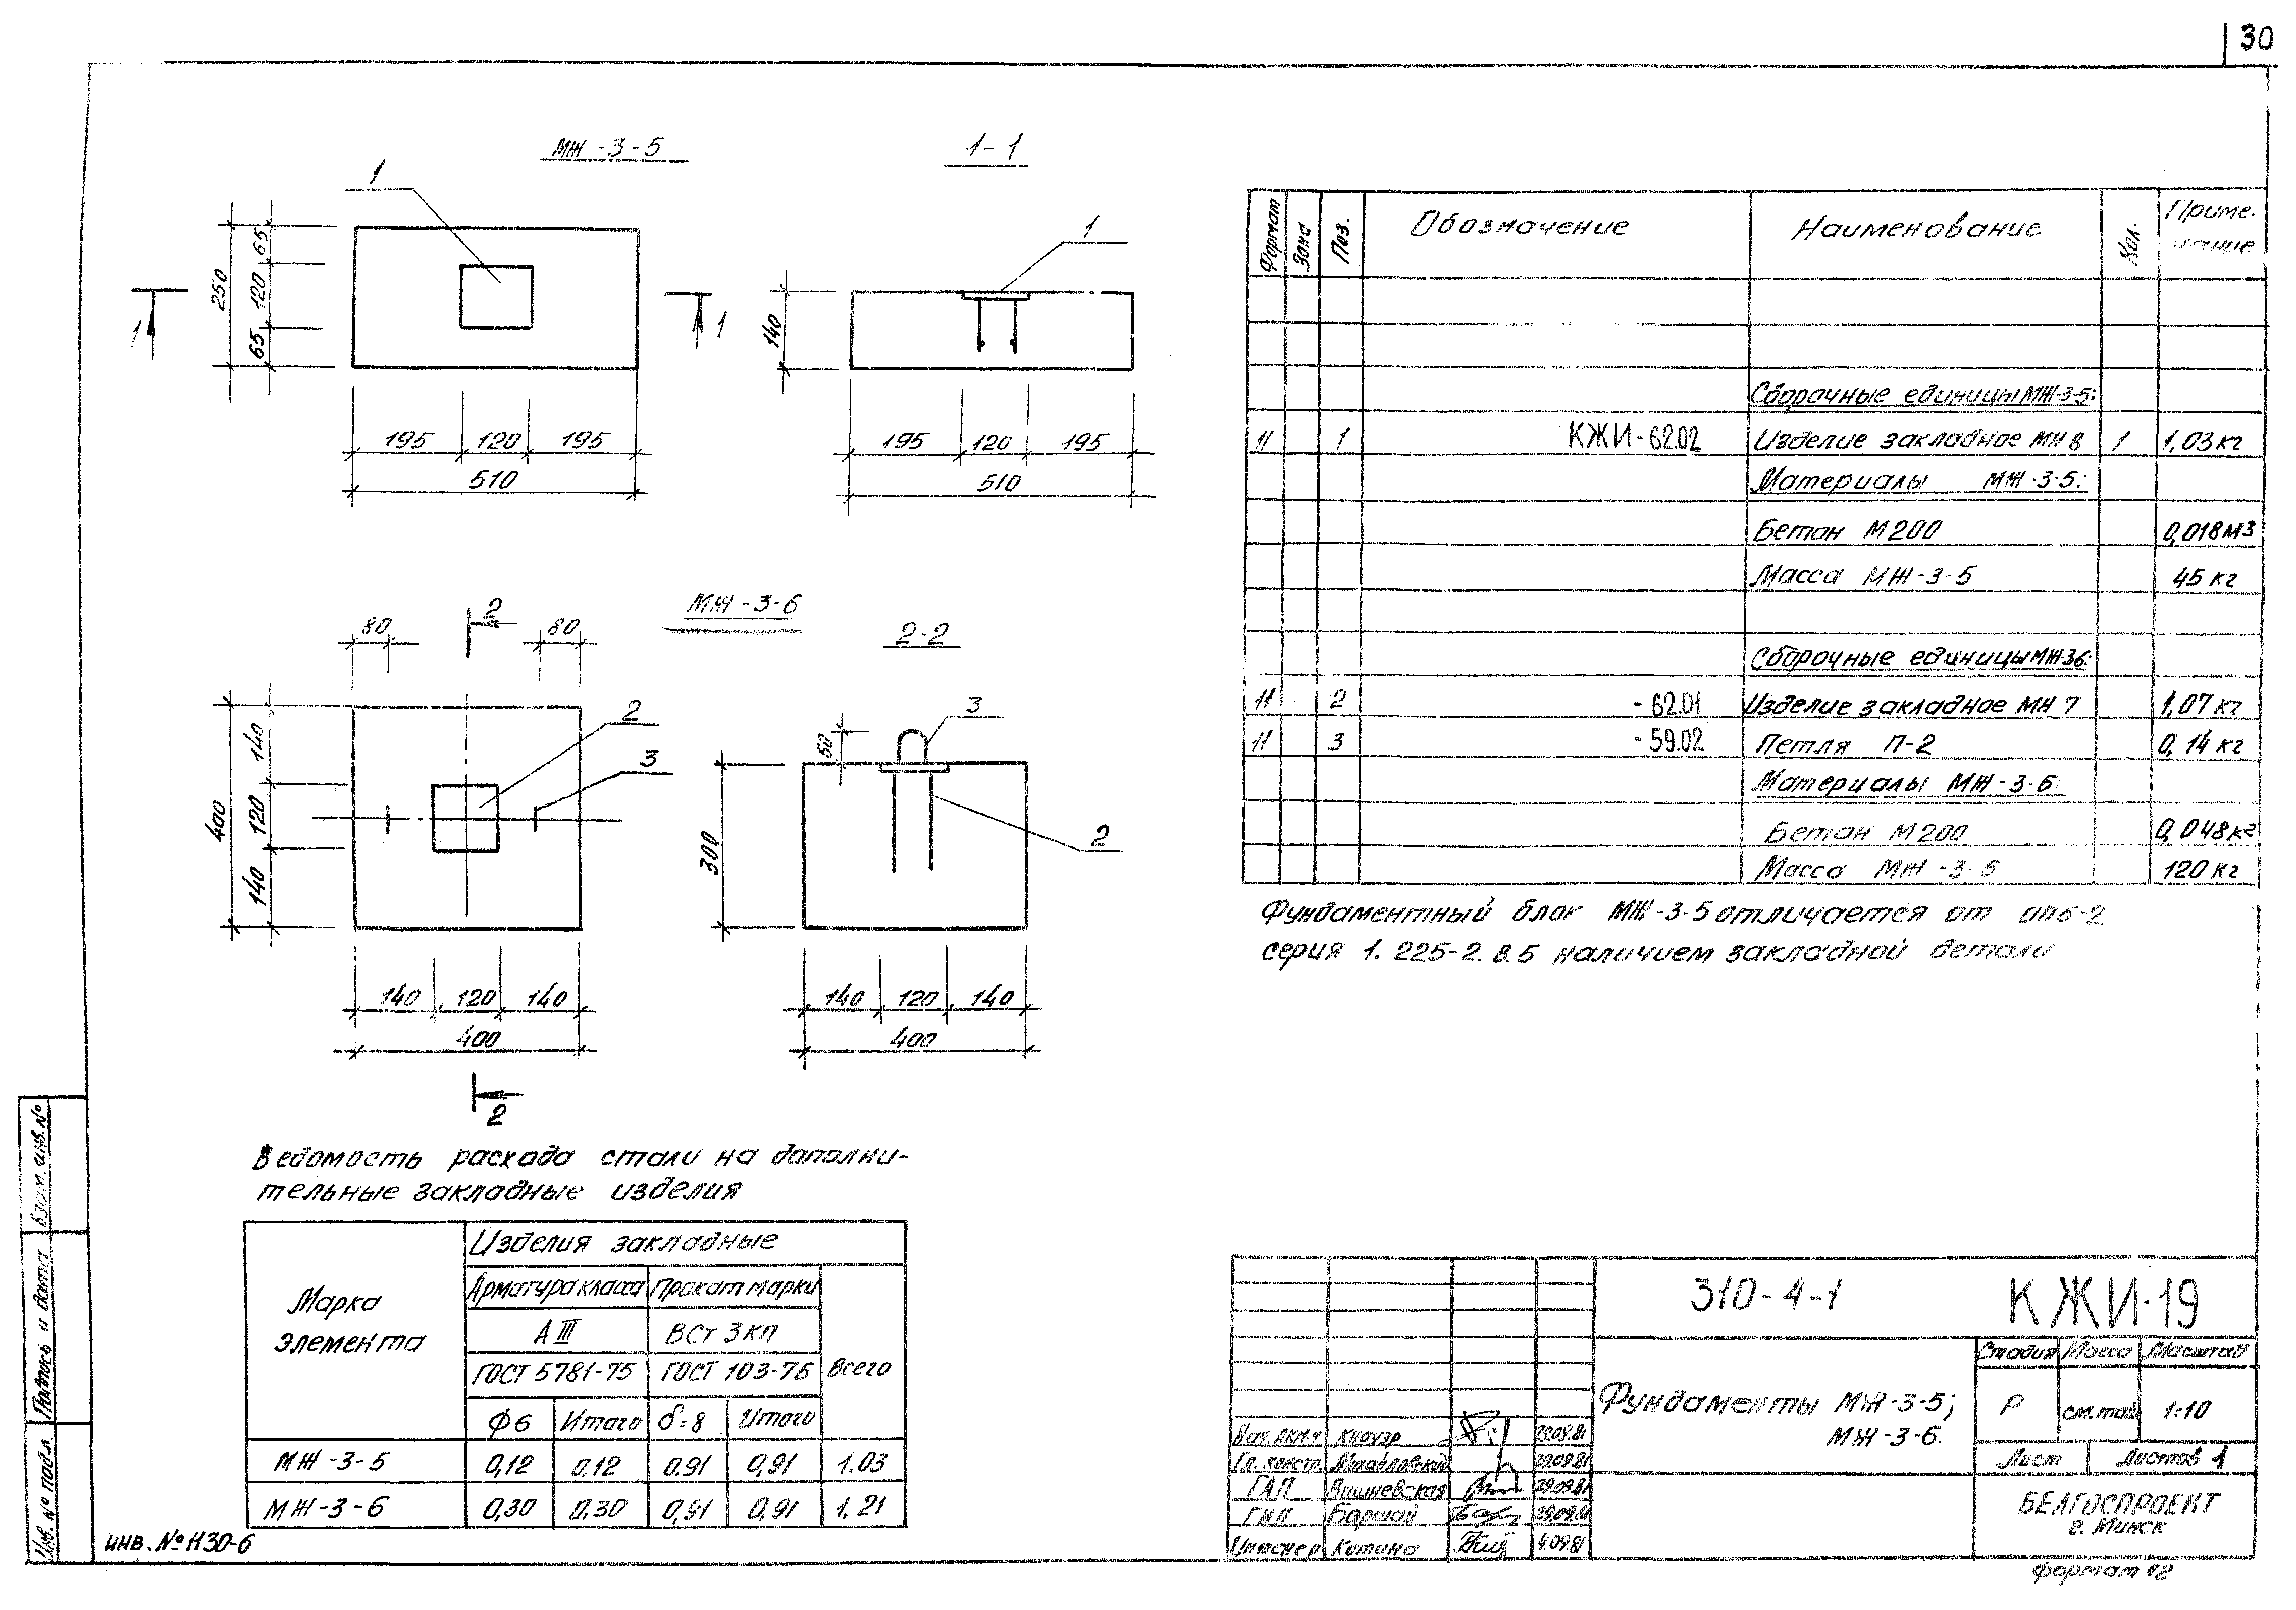 30
МЖ-3-5
1-1
1
1
250
65
120
65
1
1
140
195 120 195
510
195 120 195
510
МЖ-3-6
2-2
80
2
80
2
3
400
140
120
140
50
3
300
2
140 120 140
400
140 120 140
400
2
Формат Зона Поз. Обозначение Наименование Кол. Приме-
чание
Сборочные единицы МЖ-3-5:
11 1 КЖИ-62.02 Изделие закладное МН 8 1 1,03 кг
Материалы МЖ-3-5:
Бетон М200 0,018 м3
Масса МЖ-3-5 45 кг
Сборочные единицы МЖ-3-6:
11 2 -62.01 Изделие закладное МН 7 1,07 кг
11 3 -59.02 Петля П-2 0,14 кг
Материалы МЖ-3-6:
Бетон М200 0,048 кг
Масса МЖ-3-5 120 кг
Фундаментный блок МЖ-3-5 отличается от опб-2
серия 1.225-2.в.5 наличием закладной детали
Ведомость расхода стали на дополни-
тельные закладные изделия
Марка
элемента
Изделия закладные
Арматура класса Прокат марки
А III ВСт 3 кп
ГОСТ 5781-75 ГОСТ 103-76 Всего
Ф6 Итого δ=8 Итого
МЖ-3-5 0,12 0,12 0.91 0,91 1.03
МЖ-3-6 0,30 0,30 0,91 0,91 1,21
310-4-1 КЖИ-19
Фундаменты МЖ-3-5;
МЖ-3-6.
Стадия Масса Масштаб
Р см.таб. 1:10
Лист Листов 1
Кнауэр 29.09.81
Гл. констр. 29.09.81
ГАП Вишневская 29.09.81
ГИП 29.09.81
Инженер Котино 4.09.81
БЕЛГОСПРОЕКТ
г. Минск
формат 12
Взам. инв. №
Подпись и дата
Инв. № подл.
инв. № 1130-6